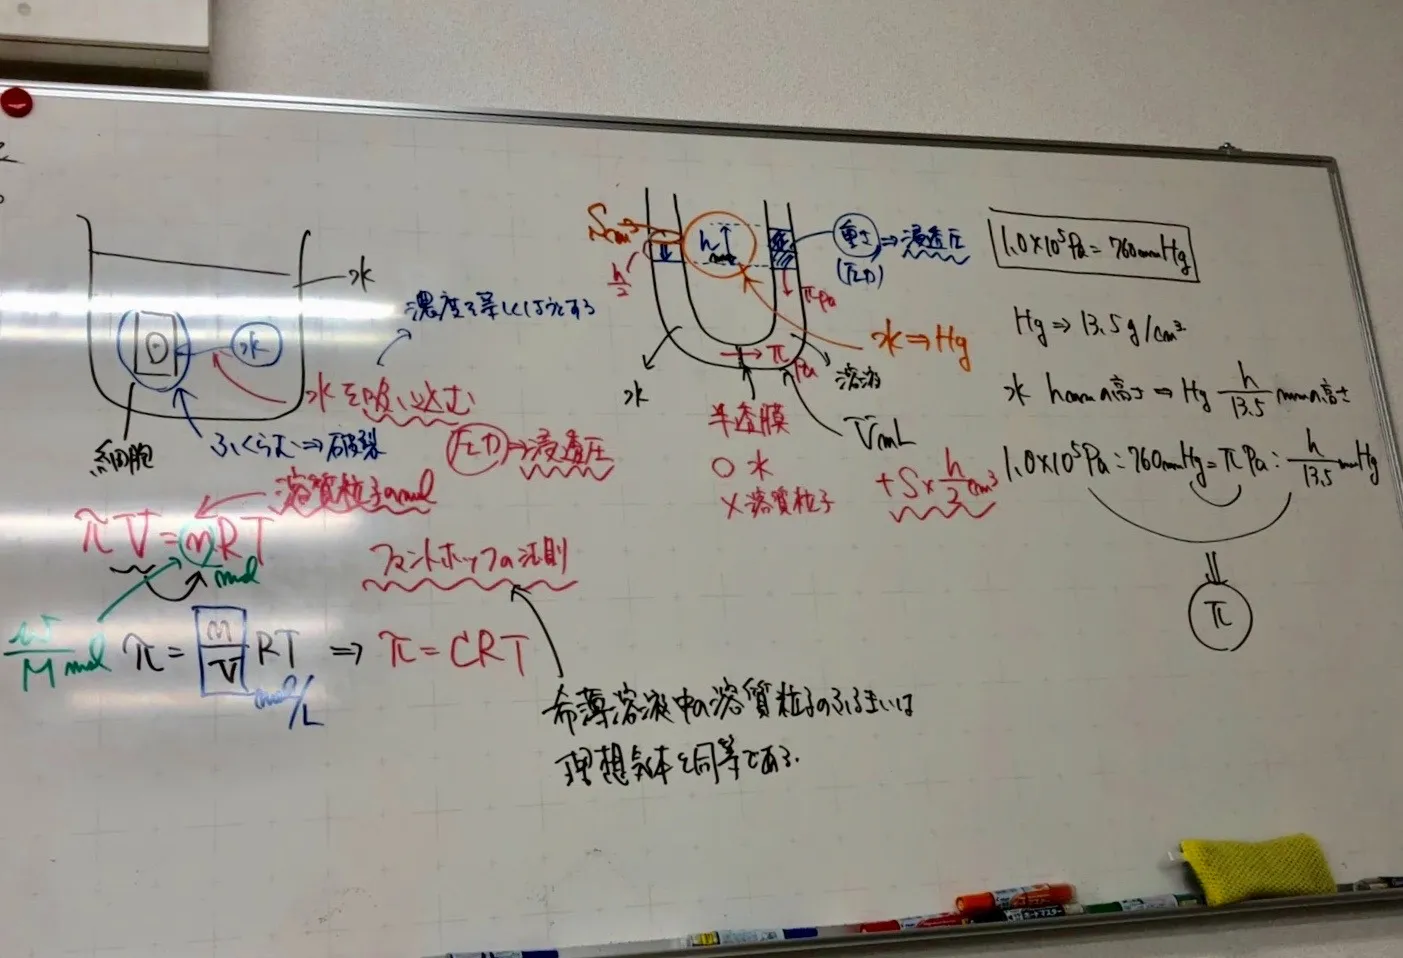 水
水
細胞
濃度を等しくしようとする
水を吸い込む
ふくらむ⇒破裂
圧力⇒浸透圧
溶質粒子のmol
πV=nRT
mol
w/M mol
π=n/V RT ⇒ π=CRT
mol/L
ファントホッフの法則
希薄溶液中の溶質粒子のふるまいは
理想気体と同等である.
Scm²
h
h/2
重さ⇒浸透圧
(圧力)
πPa
水⇒Hg
π
Pa
水
溶液
半透膜
○水
×溶質粒子
VmL
+S×h/2cm³
1.0×10⁵Pa=760mmHg
Hg⇒13.5g/cm³
水 hmmの高さ⇒Hg h/13.5 mmの高さ
1.0×10⁵Pa:760mmHg=πPa:h/13.5mmHg
π